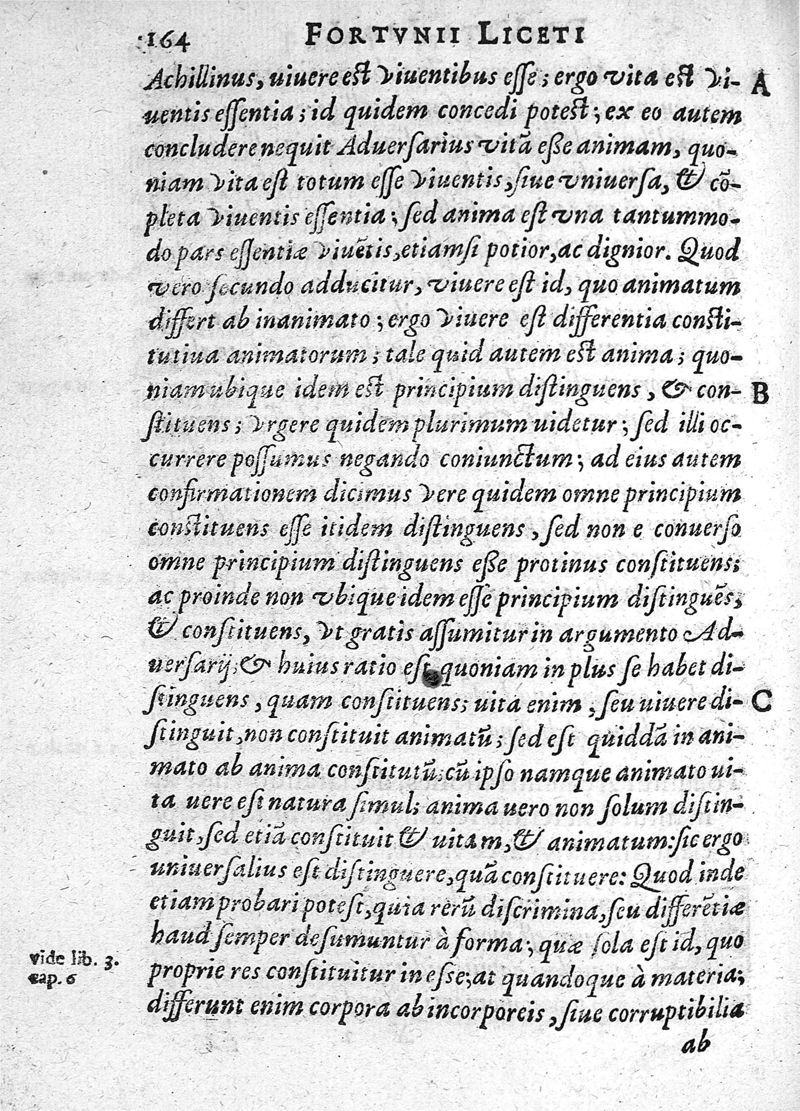 164 FORTVNII LICETI
Achillinus, uiuere est viuentibus esse; ergo vita est vi- A
uentis essentia; id quidem concedi potest; ex eo autem
concludere nequit Aduersarius vitā esse animam, quo-
niam vita est totum esse viuentis, siue vniuersa, & cō-
pleta viuentis essentia; sed anima est vna tantummo-
do pars essentiæ viuētis, etiamsi potior, ac dignior. Quod
vero secundo adducitur, viuere est id, quo animatum
differt ab inanimato; ergo viuere est differentia consti-
tutiua animatorum; tale quid autem est anima; quo-
niam ubique idem est principium distinguens, & con- B
stituens; vrgere quidem plurimum uidetur; sed illi oc-
currere possumus negando coniunctum; ad eius autem
confirmationem dicimus vere quidem omne principium
constituens esse itidem distinguens, sed non e conuerso
omne principium distinguens esse protinus constituens;
ac proinde non vbique idem esse principium distinguēs,
& constituens, vt gratis assumitur in argumento Ad-
uersarij; & huius ratio est quoniam in plus se habet di-
stinguens, quam constituens; uita enim, seu uiuere di- C
stinguit, non constituit animatū; sed est quiddā in ani-
mato ab anima constitutū; cū ipso namque animato ui-
ta uere est natura simul; anima uero non solum distin-
guit, sed etiā constituit & uitam, & animatum: sic ergo
uniuersalius est distinguere, quā constituere: Quod inde
etiam probari potest, quia rerū discrimina, seu differētiæ
haud semper desumuntur à forma; quæ sola est id, quo
vide lib. 3. proprie res constituitur in esse; at quandoque à materia;
cap. 6 differunt enim corpora ab incorporeis, siue corruptibilia
ab